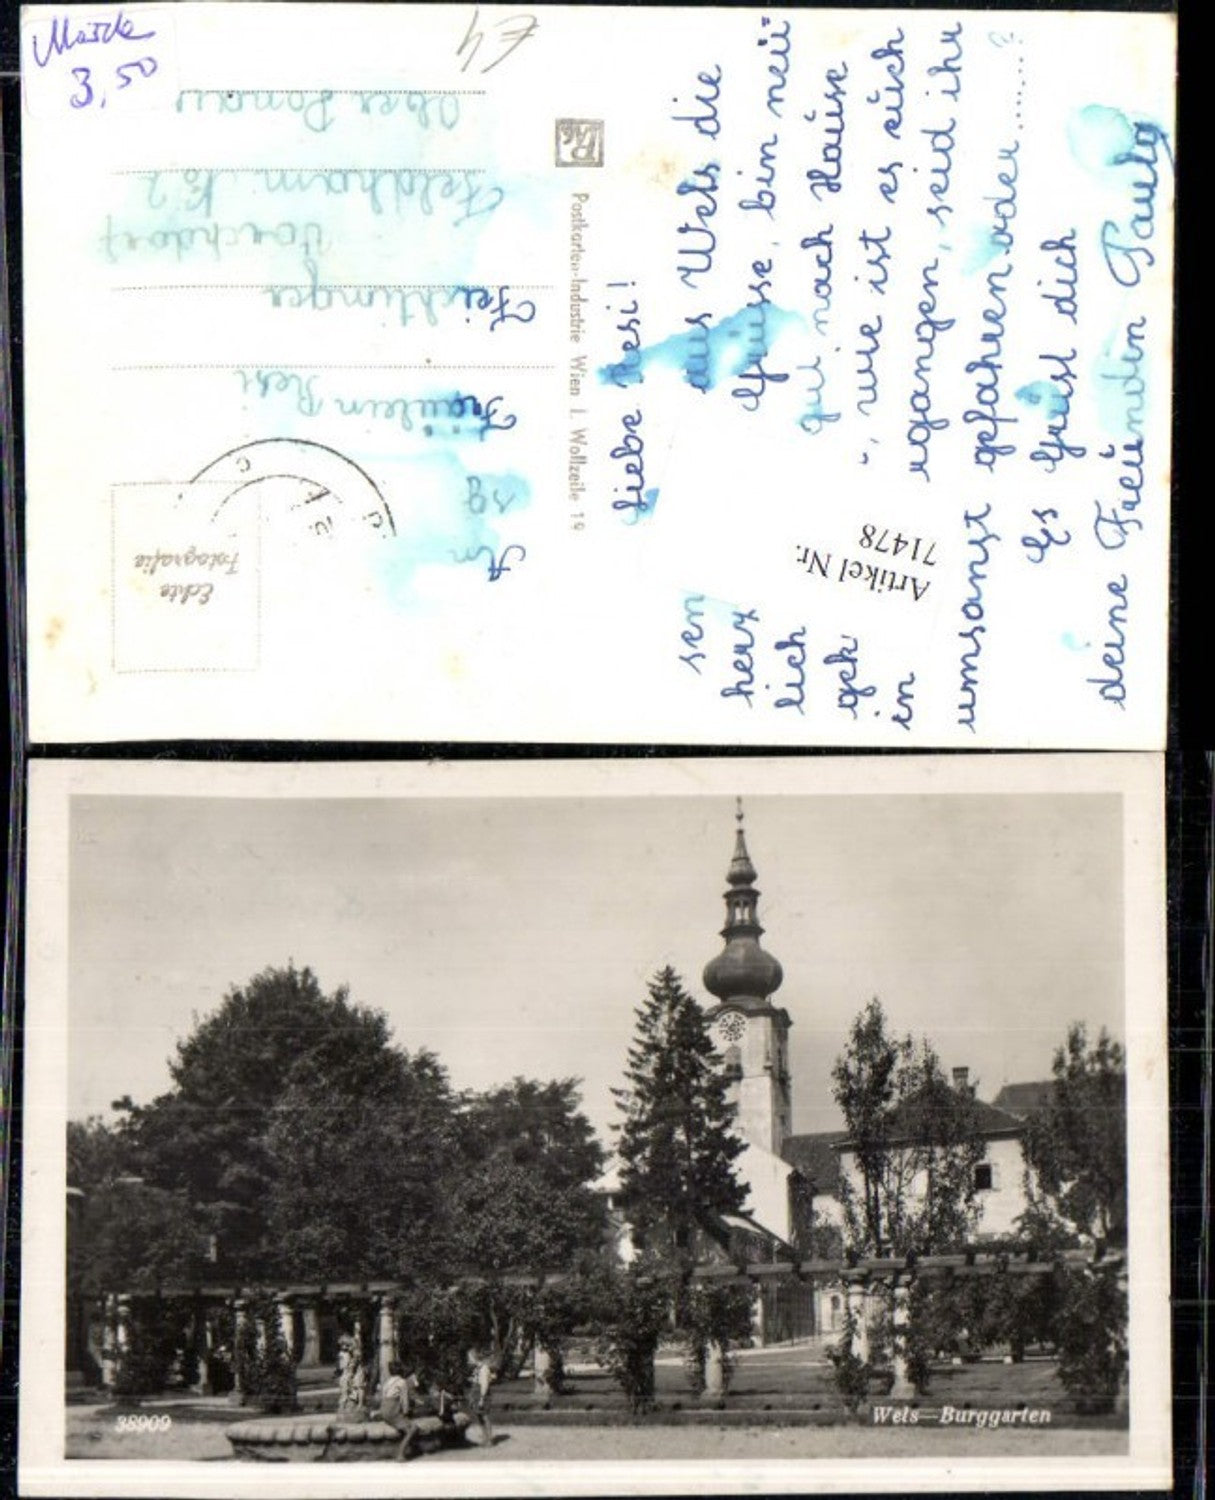 Marcle
3,50
£4
Liebe Resi!
sen aus Wels die
herz Grüsse, bin neü
lich gut nach Hause
gek , wie ist es euch
in ugangen, seid ihr
umsonst gefahren oder......?
Es Grüsst dich
deine Freundin Paula
Artikel Nr.
71478
Postkarten-Industrie Wien I. Wollzeile 19
Echte
Fotografie
An
Fräulein Resi
Feichtinger
Vorchdorf
Feldham No 2
Ober Donau
38909
Wels—Burggarten